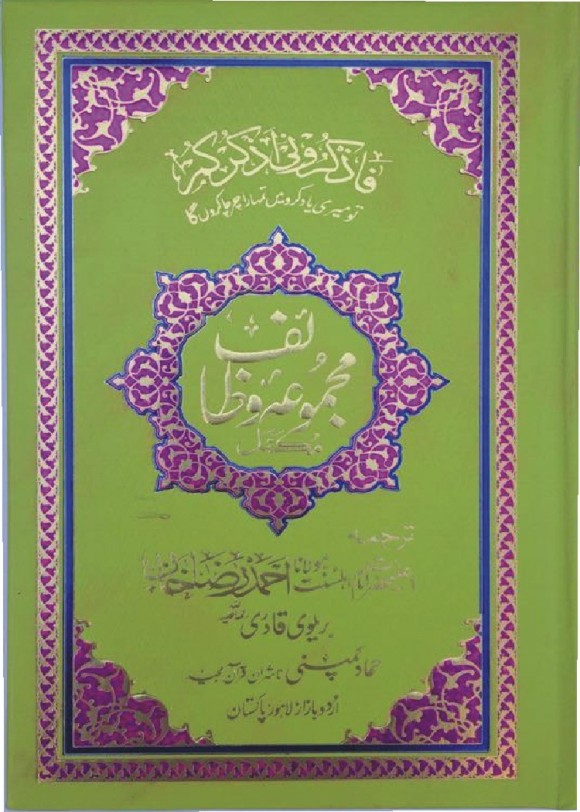 فَاذْكُرُوْنِیْۤ اَذْكُرْكُمْ
تو میری یاد کرو میں تمہارا چرچا کروں گا
مجموعہ وظائف
مکمل
ترجمہ
اعلیٰحضرت امام اہلسنت مولانا احمد رضا خان
بریلوی قادری
کمپنی ناشران قرآن مجید
اُردو بازار لاہور پاکستان